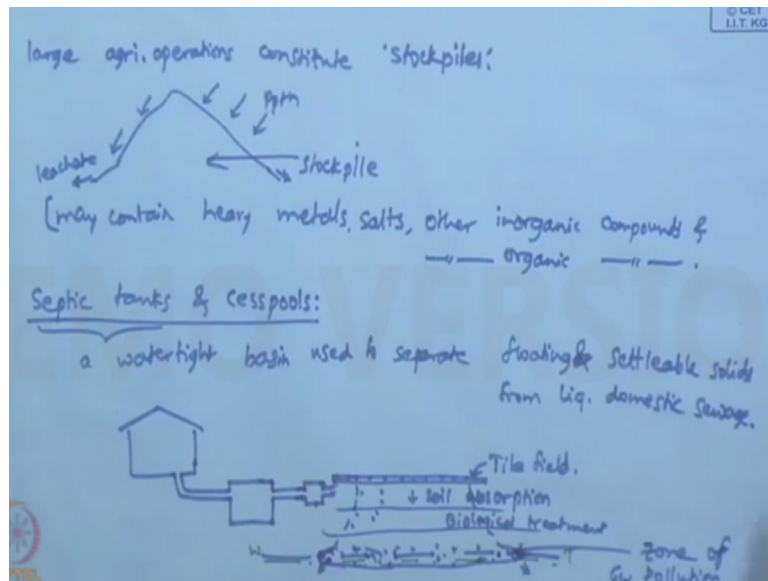 © CET
I.I.T. KG
large agri. operations constitute 'stockpiles':
pptn
leachate
stockpile
[may contain heavy metals, salts, other inorganic compounds &
—〃— organic —〃— .
Septic tanks & cesspools:
a watertight basin used to separate floating & settleable solids
from liq. domestic sewage.
Tile field.
↓ soil absorption
Biological treatment
zone of
GW pollution